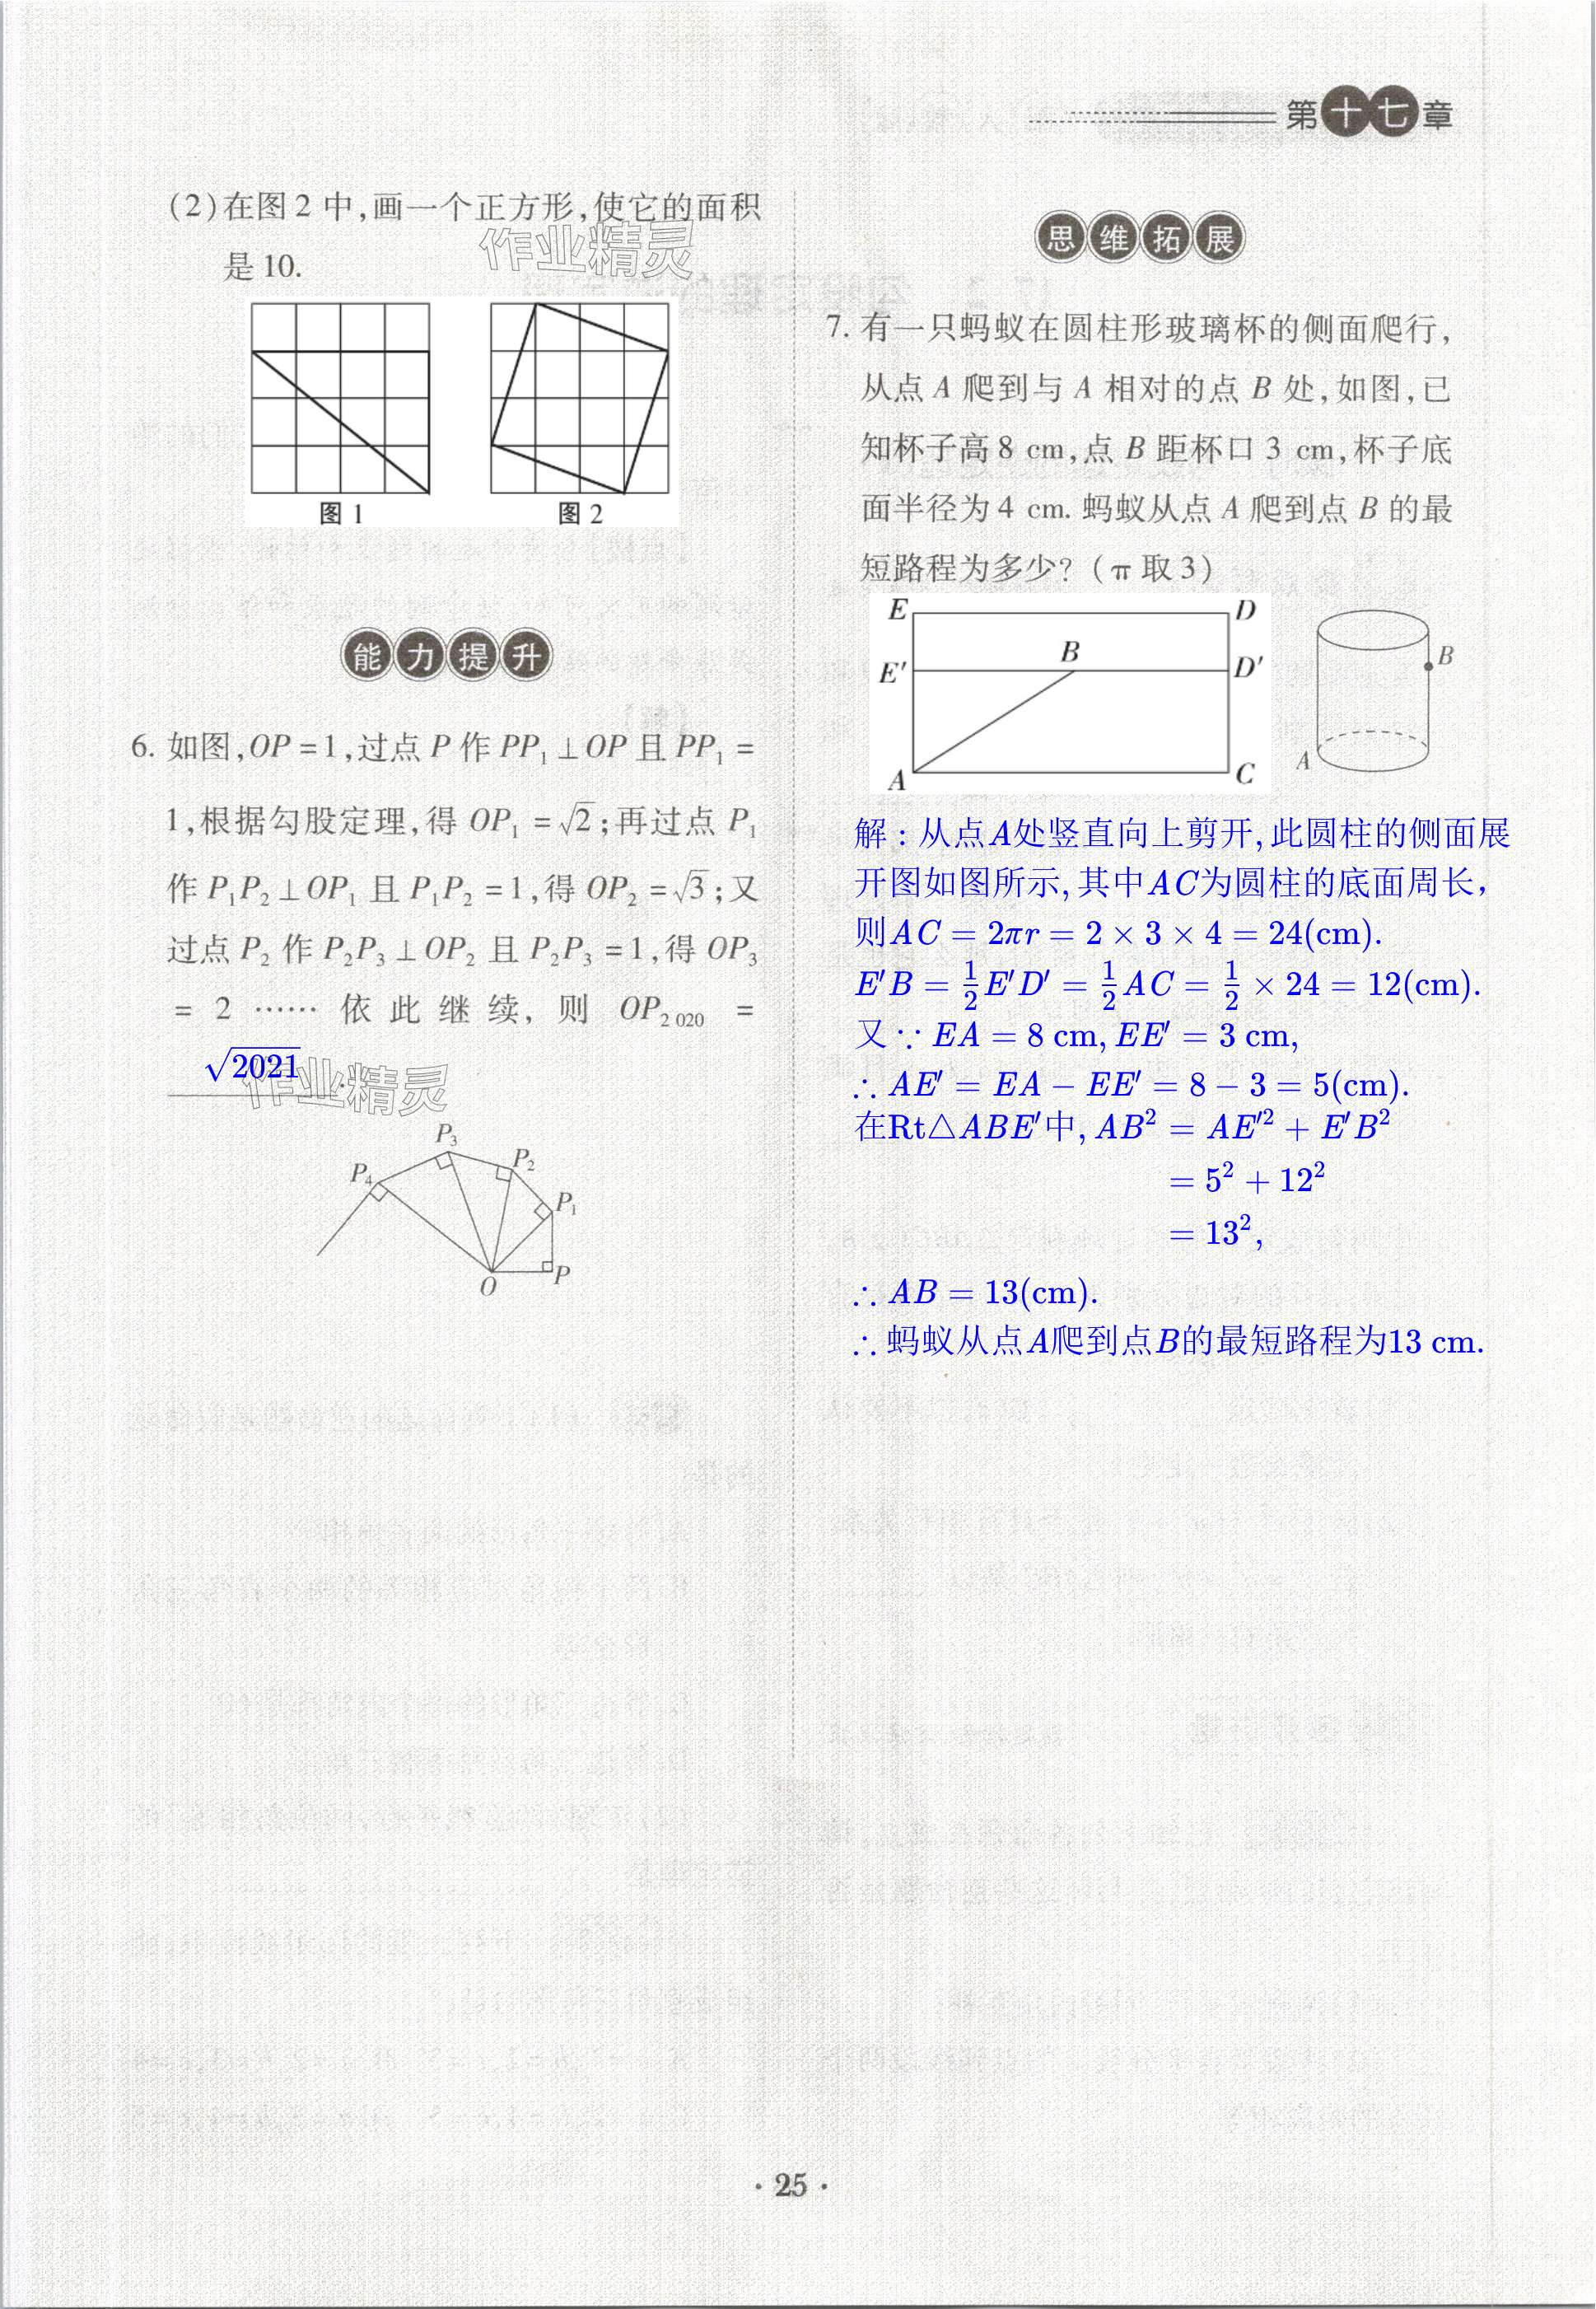 第十七章
(2)在图2中,画一个正方形,使它的面积
是10.
作业精灵
图1
图2
能力提升
6. 如图,OP=1,过点P作PP₁⊥OP且PP₁=
1,根据勾股定理,得OP₁=√2;再过点P₁
作P₁P₂⊥OP₁且P₁P₂=1,得OP₂=√3;又
过点P₂作P₂P₃⊥OP₂且P₂P₃=1,得OP₃
=2……依此继续,则OP₂ ₀₂₀=
√2021.
作业精灵
P₃
P₂
P₄
P₁
O
P
思维拓展
7. 有一只蚂蚁在圆柱形玻璃杯的侧面爬行,
从点A爬到与A相对的点B处,如图,已
知杯子高8 cm,点B距杯口3 cm,杯子底
面半径为4 cm.蚂蚁从点A爬到点B的最
短路程为多少?(π取3)
E
D
B
E′
D′
A
C
B
A
解:从点A处竖直向上剪开,此圆柱的侧面展
开图如图所示,其中AC为圆柱的底面周长,
则AC=2πr=2×3×4=24(cm).
E′B=1/2E′D′=1/2AC=1/2×24=12(cm).
又∵EA=8 cm,EE′=3 cm,
∴AE′=EA−EE′=8−3=5(cm).
在Rt△ABE′中,AB²=AE′²+E′B²
=5²+12²
=13²,
∴AB=13(cm).
∴蚂蚁从点A爬到点B的最短路程为13 cm.
·25·